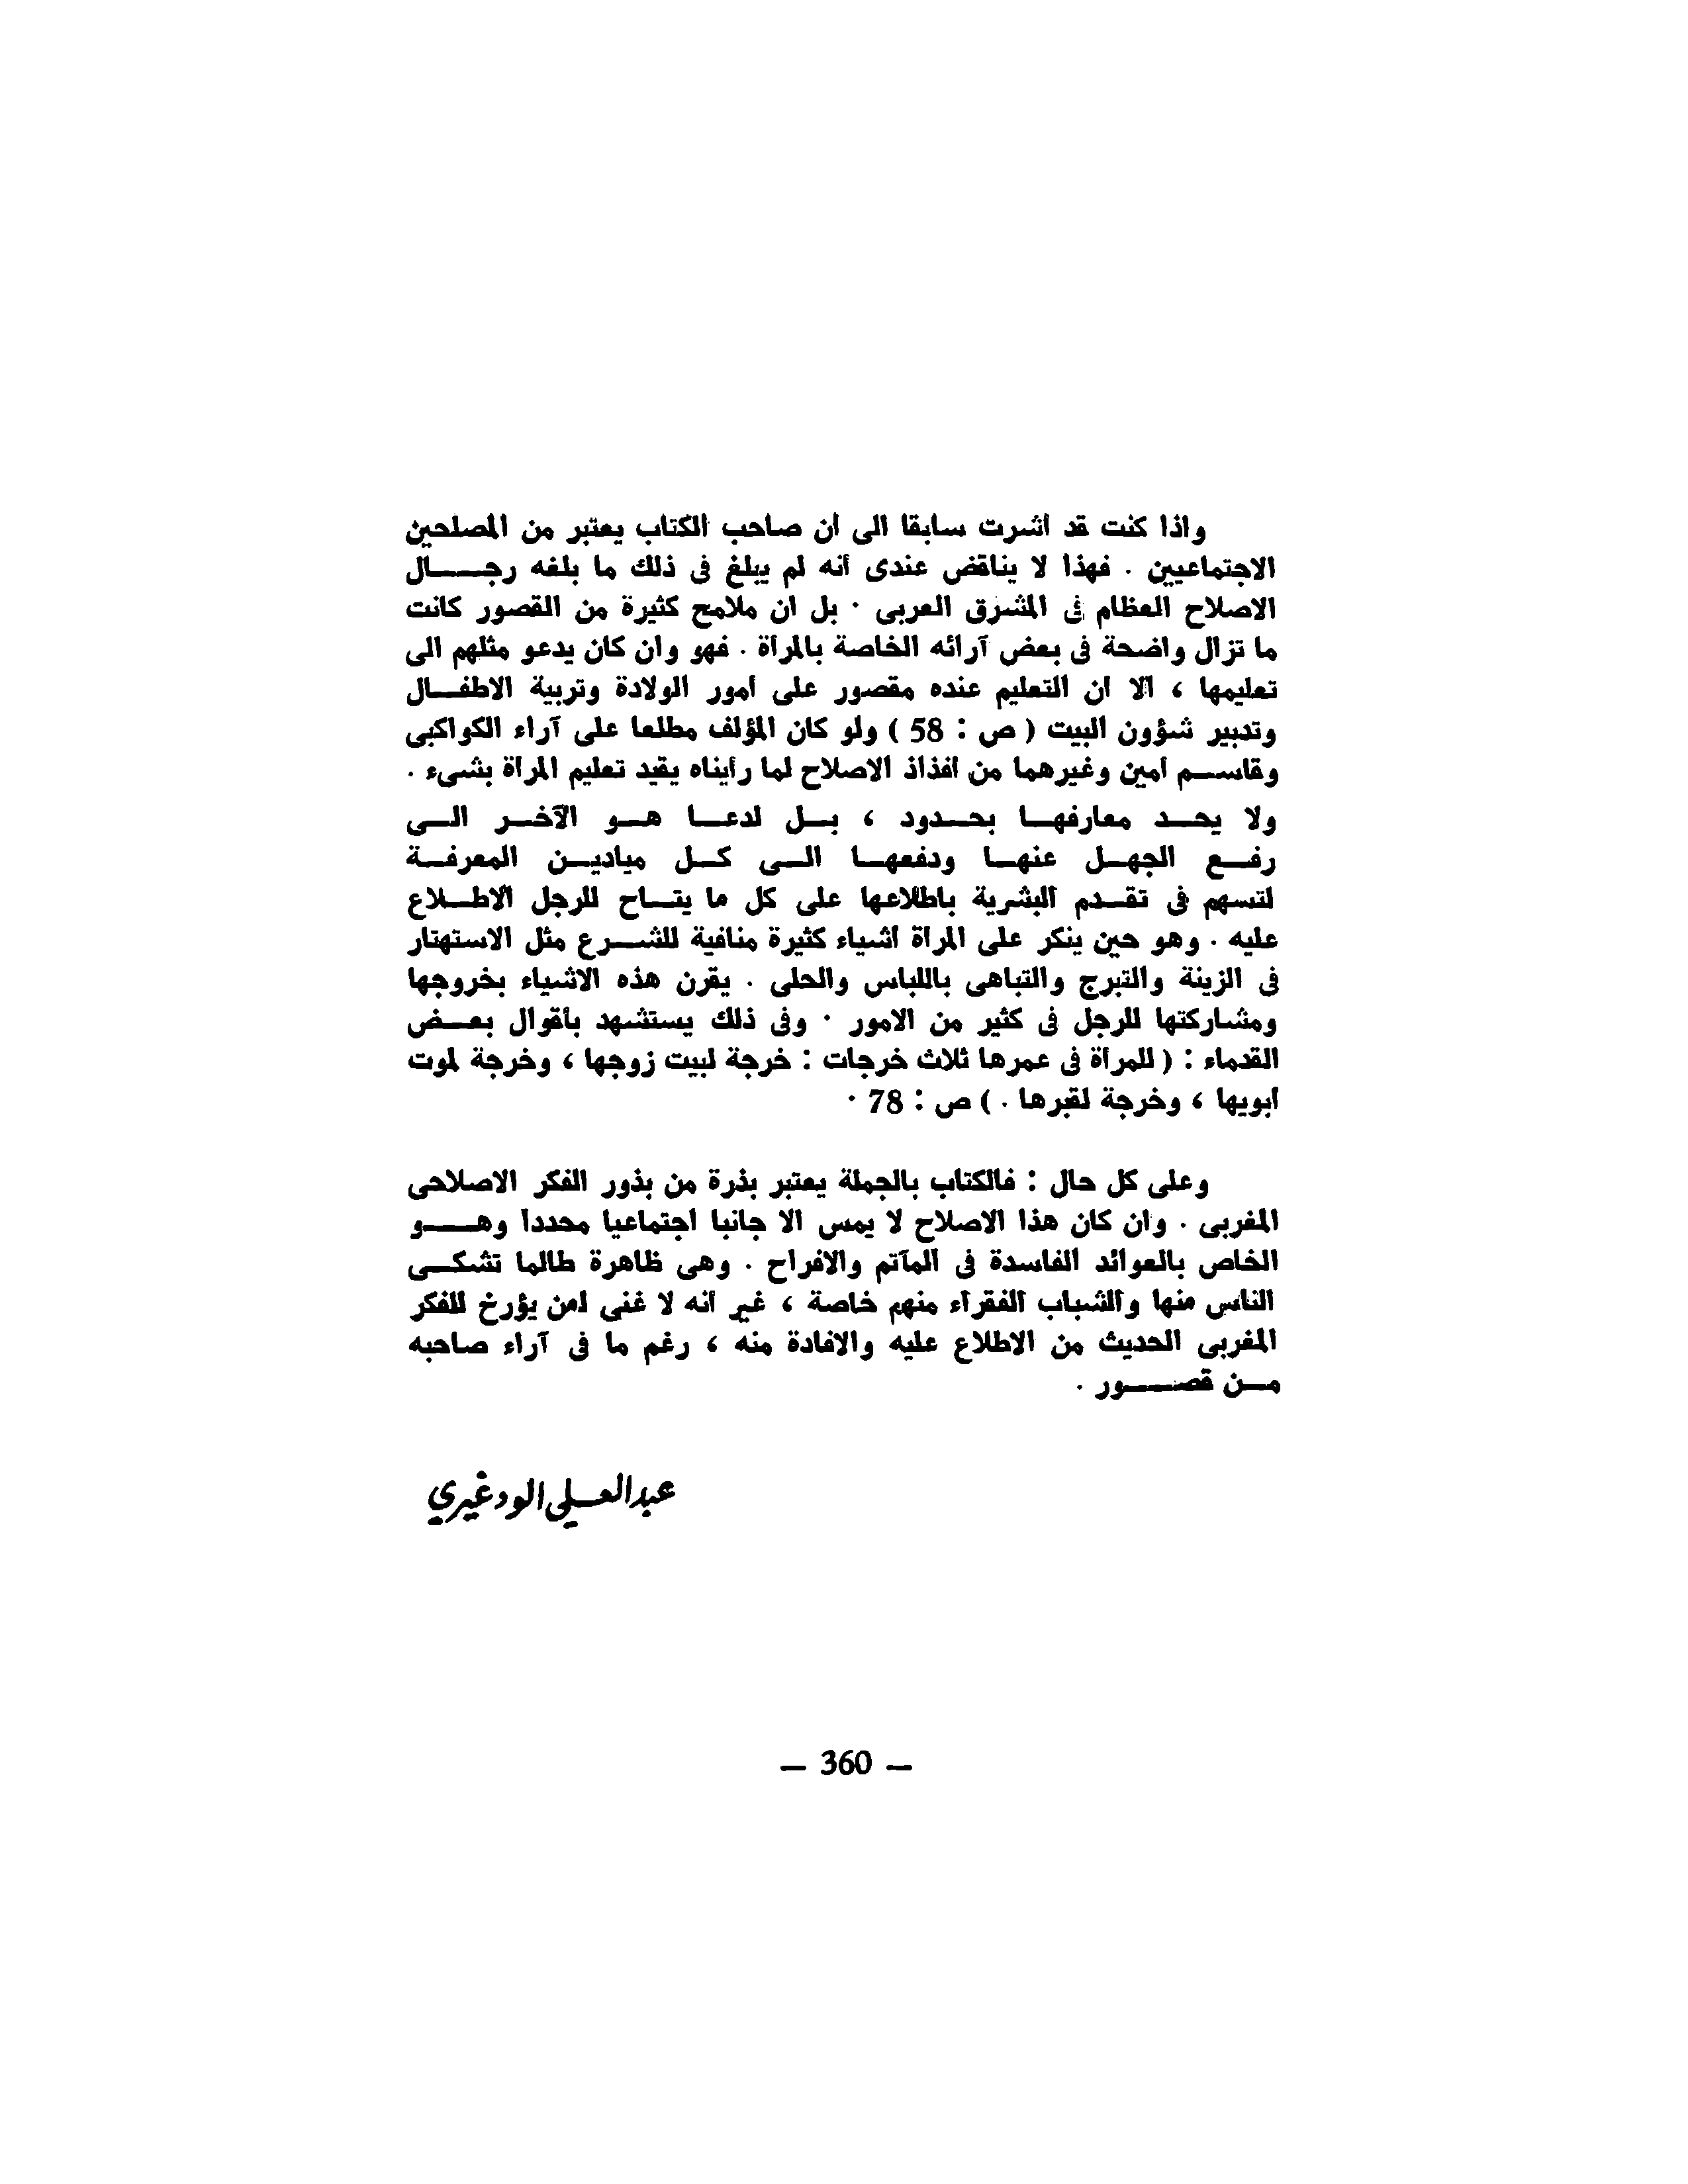 واذا كنت قد أشرت سابقا الى أن صاحب الكتاب يعتبر من المصلحين
الاجتماعيين . فهذا لا يناقض عندى أنه لم يبلغ فى ذلك ما بلغه رجـــال
الاصلاح العظام فى المشرق العربى . بل ان ملامح كثيرة من القصور كانت
ما تزال واضحة فى بعض آرائه الخاصة بالمرأة . فهو وان كان يدعو مثلهم الى
تعليمها ، الا ان التعليم عنده مقصور على أمور الولادة وتربية الاطفــال
وتدبير شؤون البيت ( ص : 58 ) ولو كان المؤلف مطلعا على آراء الكواكبى
وقاســم أمين وغيرهما من أفذاذ الاصلاح لما رأيناه يقيد تعليم المرأة بشىء .
ولا يحــد معارفهــا بحــدود ، بــل لدعــا هــو الآخــر الــى
رفــع الجهــل عنهــا ودفعهــا الــى كــل مياديــن المعرفــة
لتسهم فى تقــدم البشرية باطلاعها على كل ما يتــاح للرجل الاطــلاع
عليه . وهو حين ينكر على المرأة أشياء كثيرة منافية للشــرع مثل الاستهتار
فى الزينة والتبرج والتباهى باللباس والحلى . يقرن هذه الاشياء بخروجها
ومشاركتها للرجل فى كثير من الامور . وفى ذلك يستشهد بأقوال بعــض
القدماء : ( للمرأة فى عمرها ثلاث خرجات : خرجة لبيت زوجها ، وخرجة لموت
أبويها ، وخرجة لقبرها . ) ص : 78 .
وعلى كل حال : فالكتاب بالجملة يعتبر بذرة من بذور الفكر الاصلاحى
المغربى . وان كان هذا الاصلاح لا يمس الا جانبا اجتماعيا محددا وهــو
الخاص بالعوائد الفاسدة فى المآتم والافراح . وهى ظاهرة طالما تشكــى
الناس منها والشباب الفقراء منهم خاصة ، غير أنه لا غنى لمن يؤرخ للفكر
المغربى الحديث من الاطلاع عليه والافادة منه ، رغم ما فى آراء صاحبه
مــن قصــور .
عبد العــلي الودغيري
— 360 —